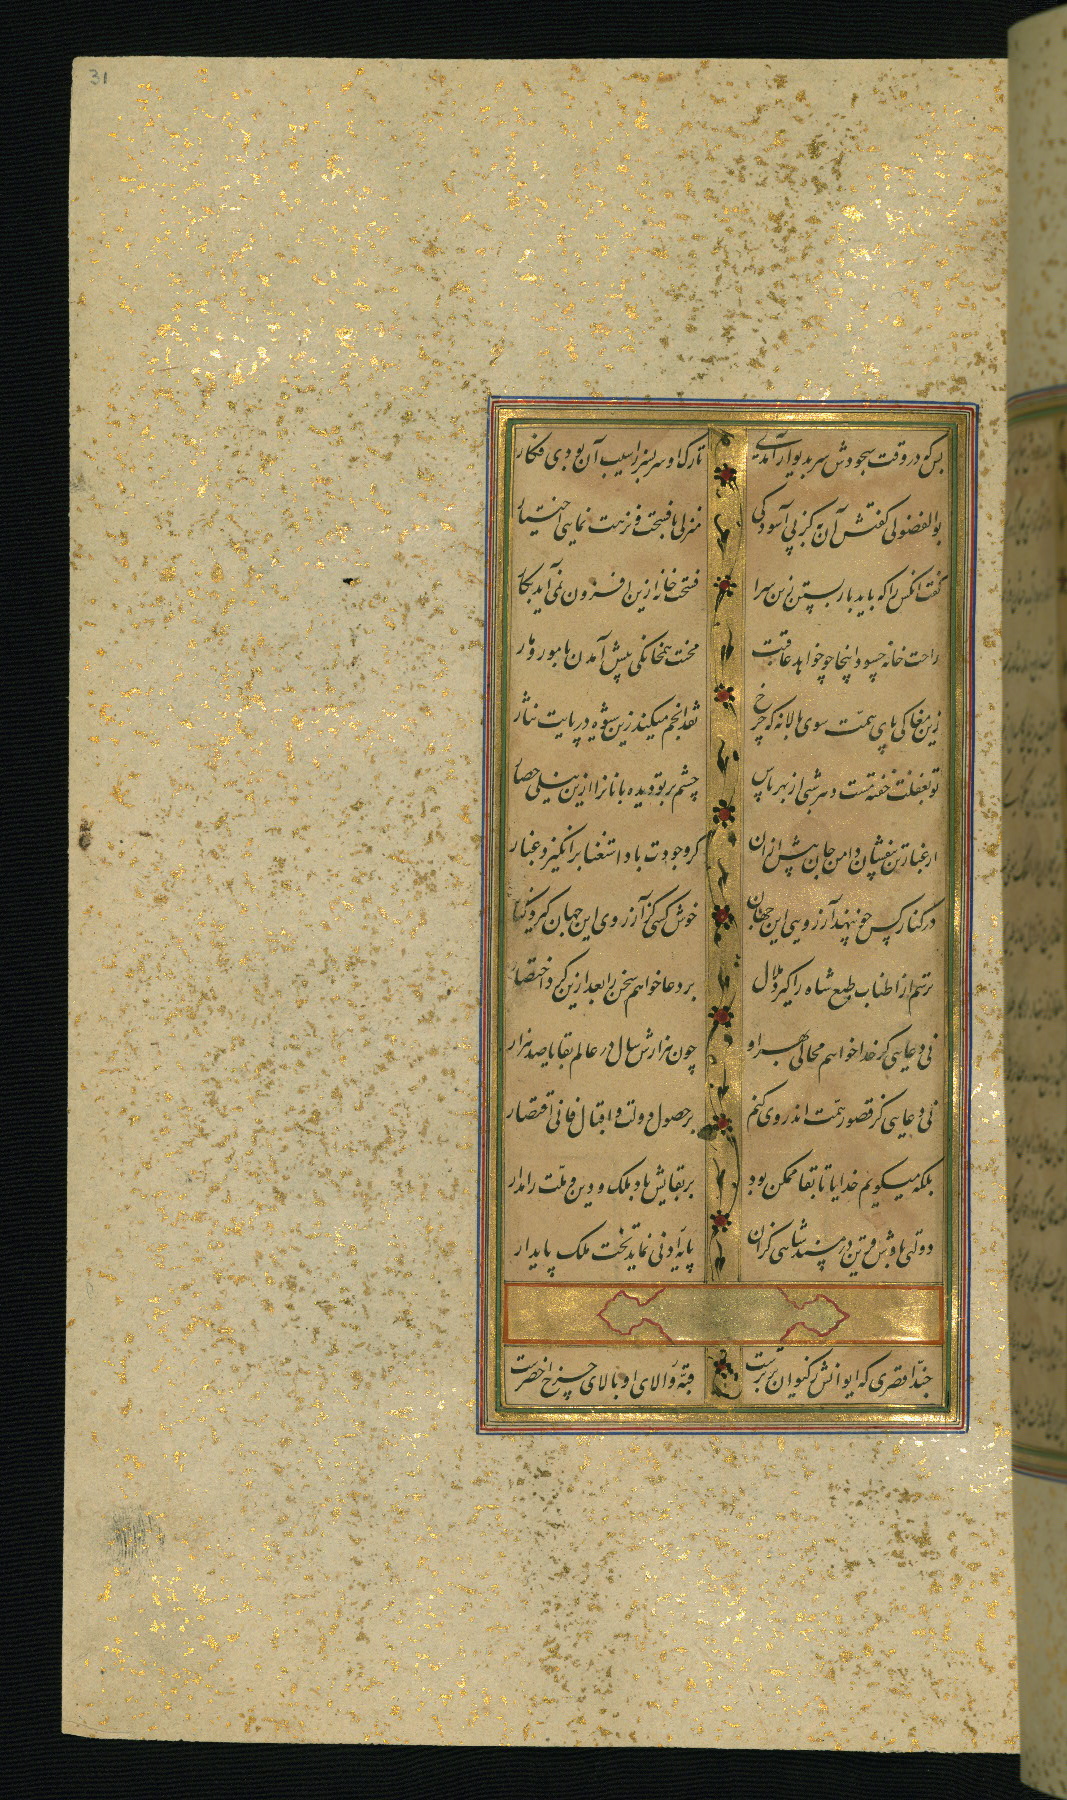 31
بس که در وقت سجودش سر بدیوار آمدی تارک او سر بسر ز اسیب آن بودی فکار
بوالفضولی گفتش آن به کز پی آسودگی منزلی با فسحت و نزهت نمایی اختیار
گفت آنکس را که باید بار بستن زین سرا فسحت خانه ازین افزون نمی آید بکار
راحت خانه چسود اینجا چو خواهد عاقبت محنت همخانگی پیش آمدن با مور و مار
زین مغاکی پای همت سوی بالا نه که چرخ نقد انجم میکند زین شیوه در پایت نثار
تو بغفلت خفته مست و هر شبی از بهر پاس چشم بر تو دیده بانانرا ازین نیلی حصار
از غبار تن بیفشان دامن جان پیش از ان کز وجودت باد استغنا بر انگیزد غبار
در کنار کس چو ننهند آرزویی این جهان خوش کسی کز آرزوی این جهان گیرد کنار
ترسم از اطناب طبع شاه را گیرد ملال بر دعا خواهم سخن را بعد ازین کرد اختصار
نی دعایی کز خدا خواهم محالی بهر او چون هزارش سال در عالم بقا یا صد هزار
نی دعایی کز قصور همت اندر وی کنم بر حصول دولت و اقبال فانی اقتصار
بلکه میگویم خدایا تا بقا ممکن بود بر بقایش باد ملک و دین و ملت را مدار
دولتی بادش قرین در مسند شاهی کزان پایه ادنی نماید تخت ملک پایدار
حبّذا قصری که ایوانش ز کیوان برترست قبّه والای او بالای چرخ اخضرست